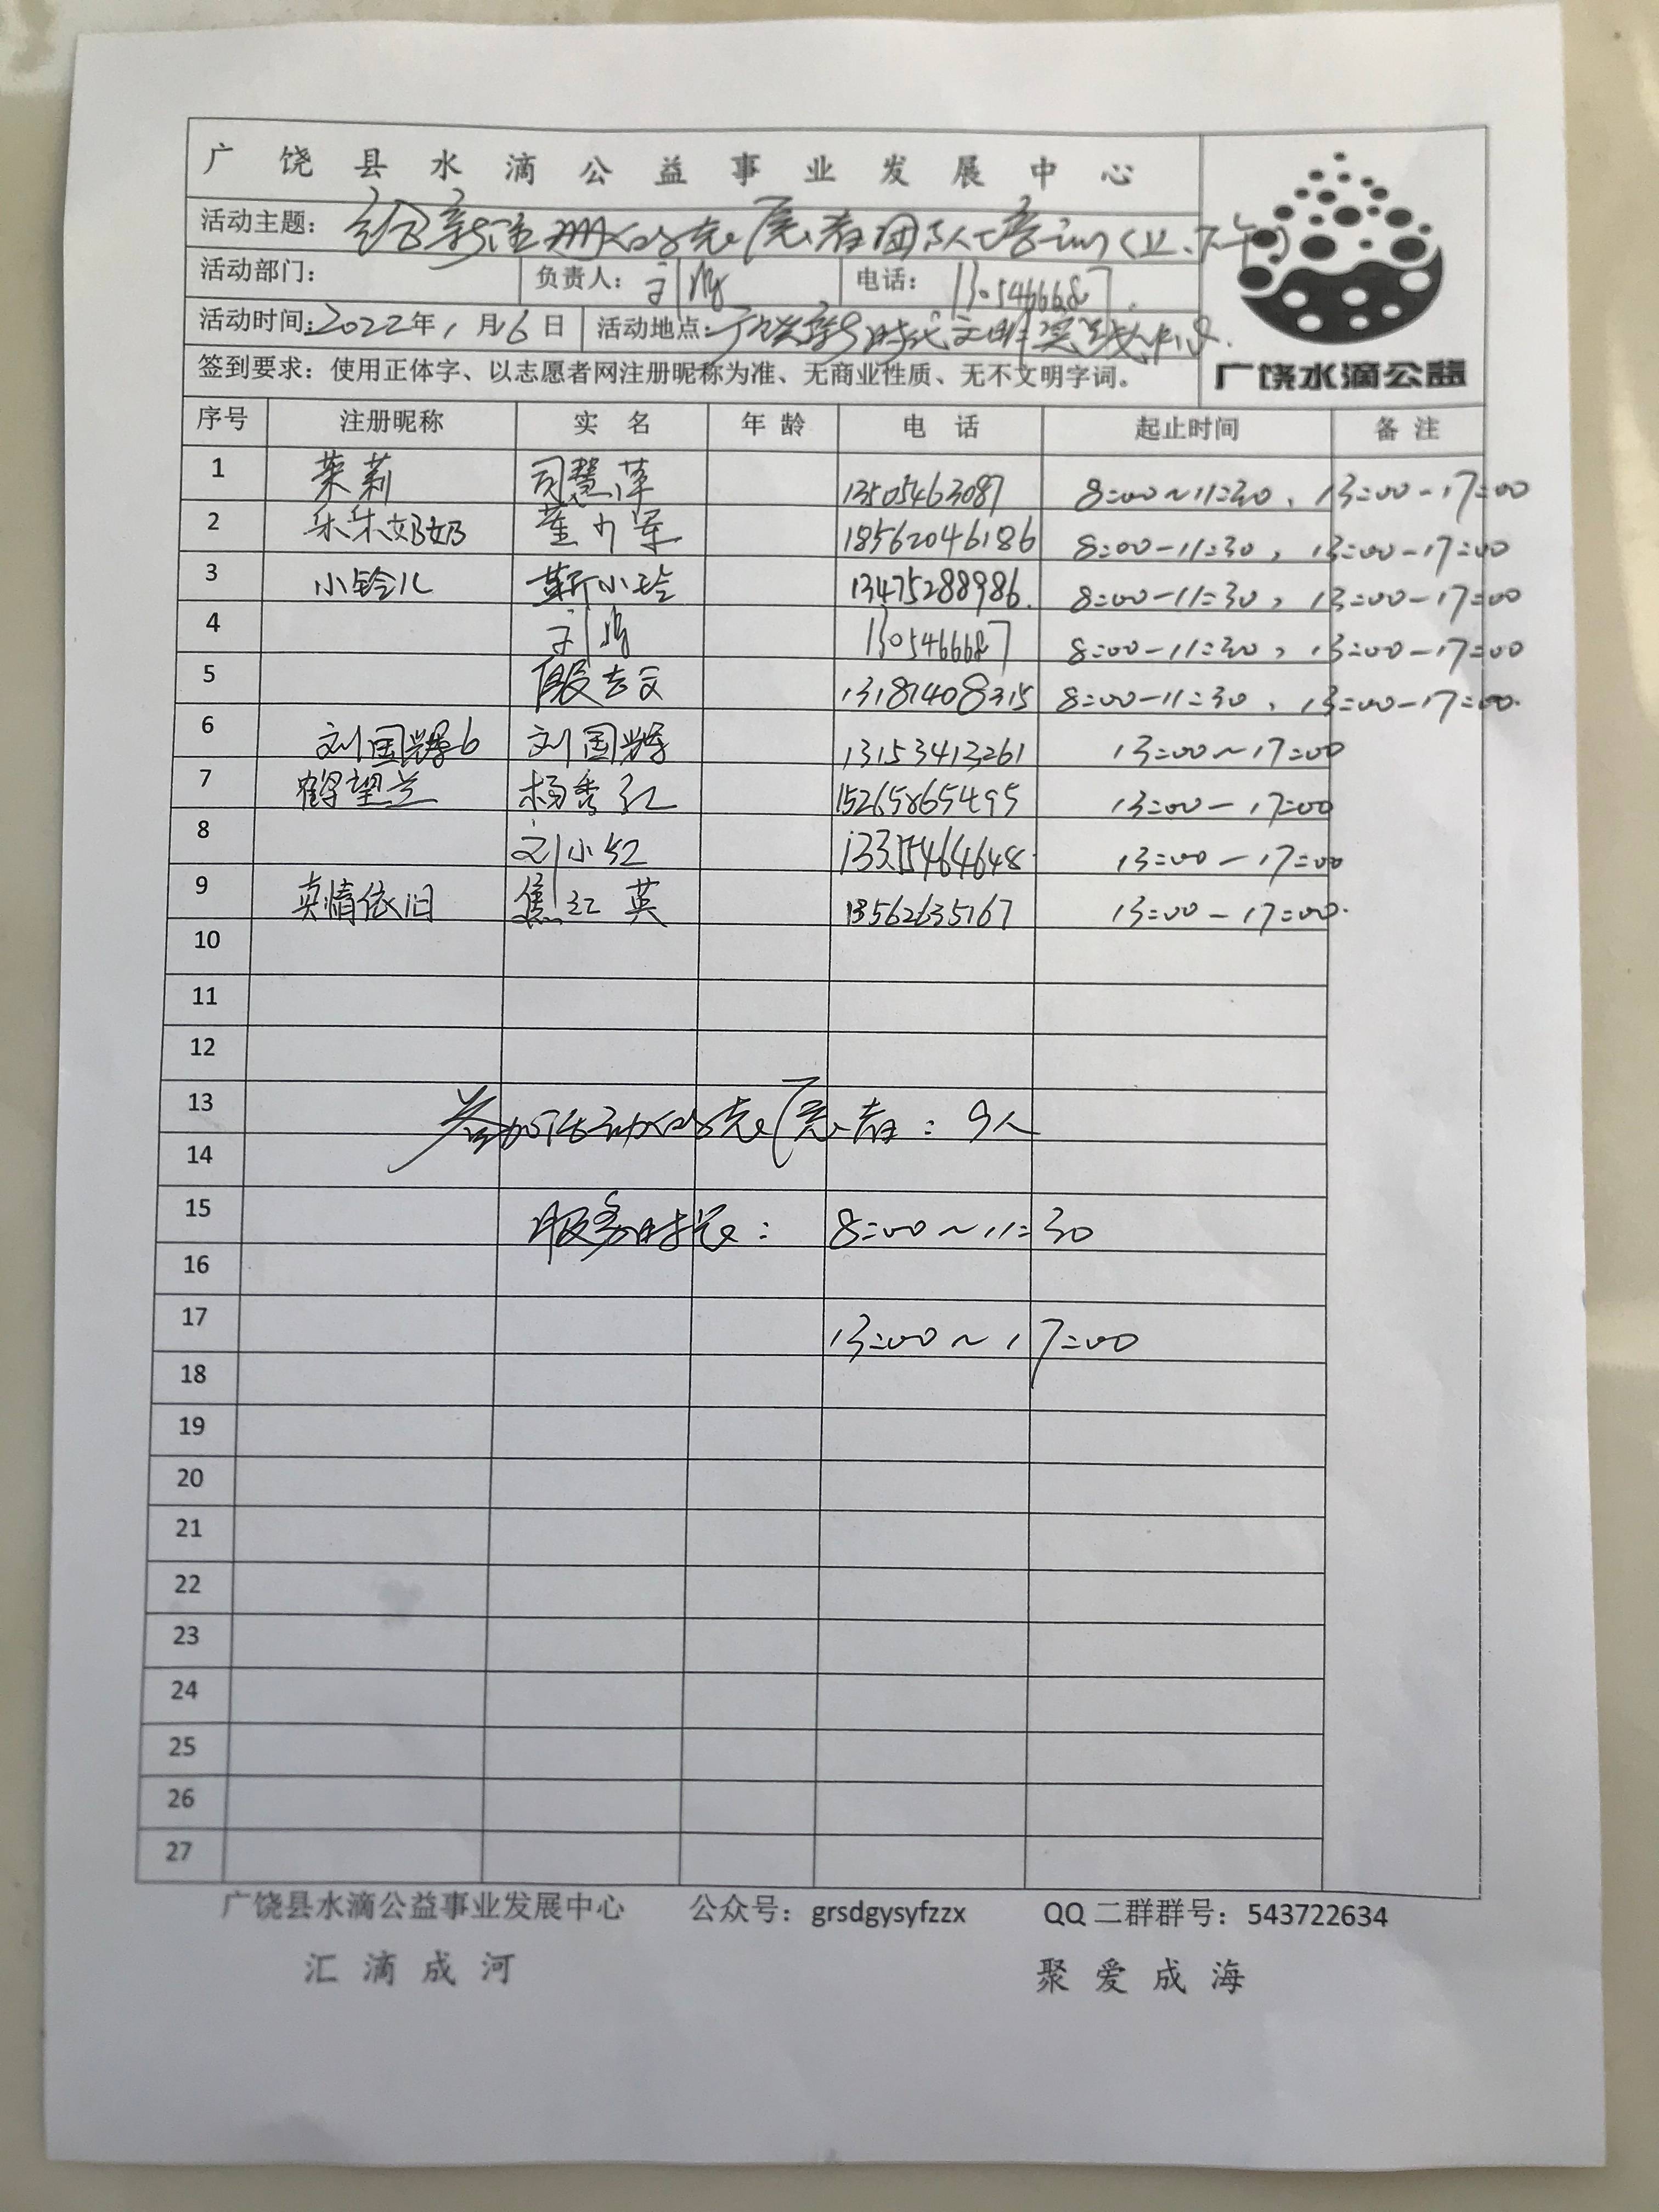 广饶县水滴公益事业发展中心
活动主题：给新注册的志愿者团队培训（上、下午）
活动部门： 负责人： 电话：
活动时间：2022年1月6日 活动地点：广饶新时代文明实践中心.
签到要求：使用正体字、以志愿者网注册昵称为准、无商业性质、无不文明字词。
广饶水滴公益
序号 注册昵称 实名 年龄 电话 起止时间 备注
1 茉莉 司慧萍 13505463087 8:00~11:30、13:00-17:00
2 朵朵奶奶 18562046186 8:00-11:30, 13:00-17:00
3 小铃儿 靳小玲 13475288986. 8:00-11:30, 13:00-17:00
4 8:00-11:30, 13:00-17:00
5 13181408315 8:00-11:30, 13:00-17:00.
6 刘国辉6 刘国辉 13153413261 13:00~17:00
7 鹤望兰 杨秀红 15265865495 13:00-17:00
8 刘小红 13:00-17:00
9 真情依旧 焦红英 13562635167 13:00-17:00.
10
11
12
13 参加活动的志愿者：9人
14
15 服务时长：8:00~11:30
16
17 13:00~17:00
18
19
20
21
22
23
24
25
26
27
广饶县水滴公益事业发展中心 公众号：grsdgysyfzzx QQ二群群号：543722634
汇滴成河 聚爱成海